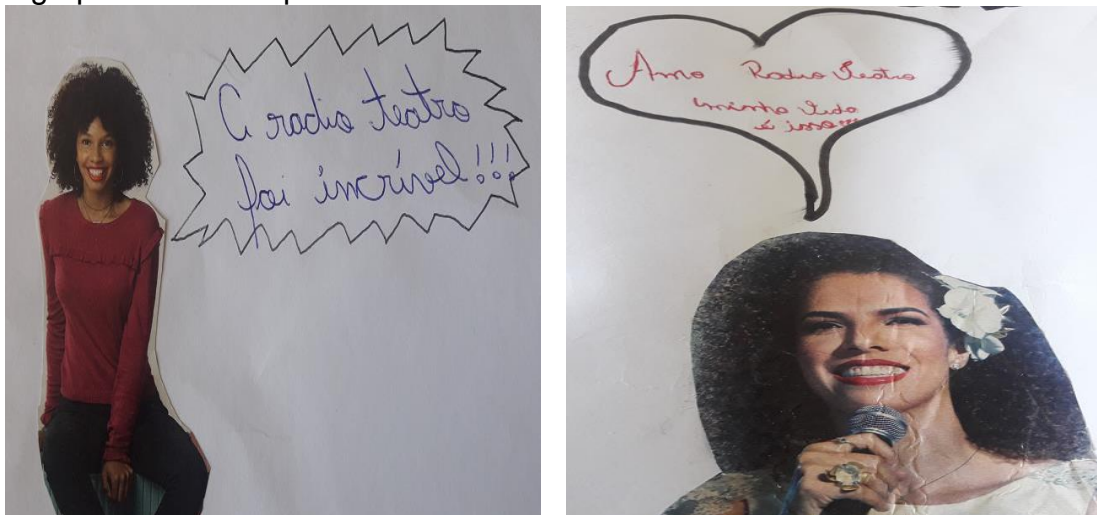 A radio teatro
foi incrível!!!
Amo Radio Teatro
minha vida
é isso!!!